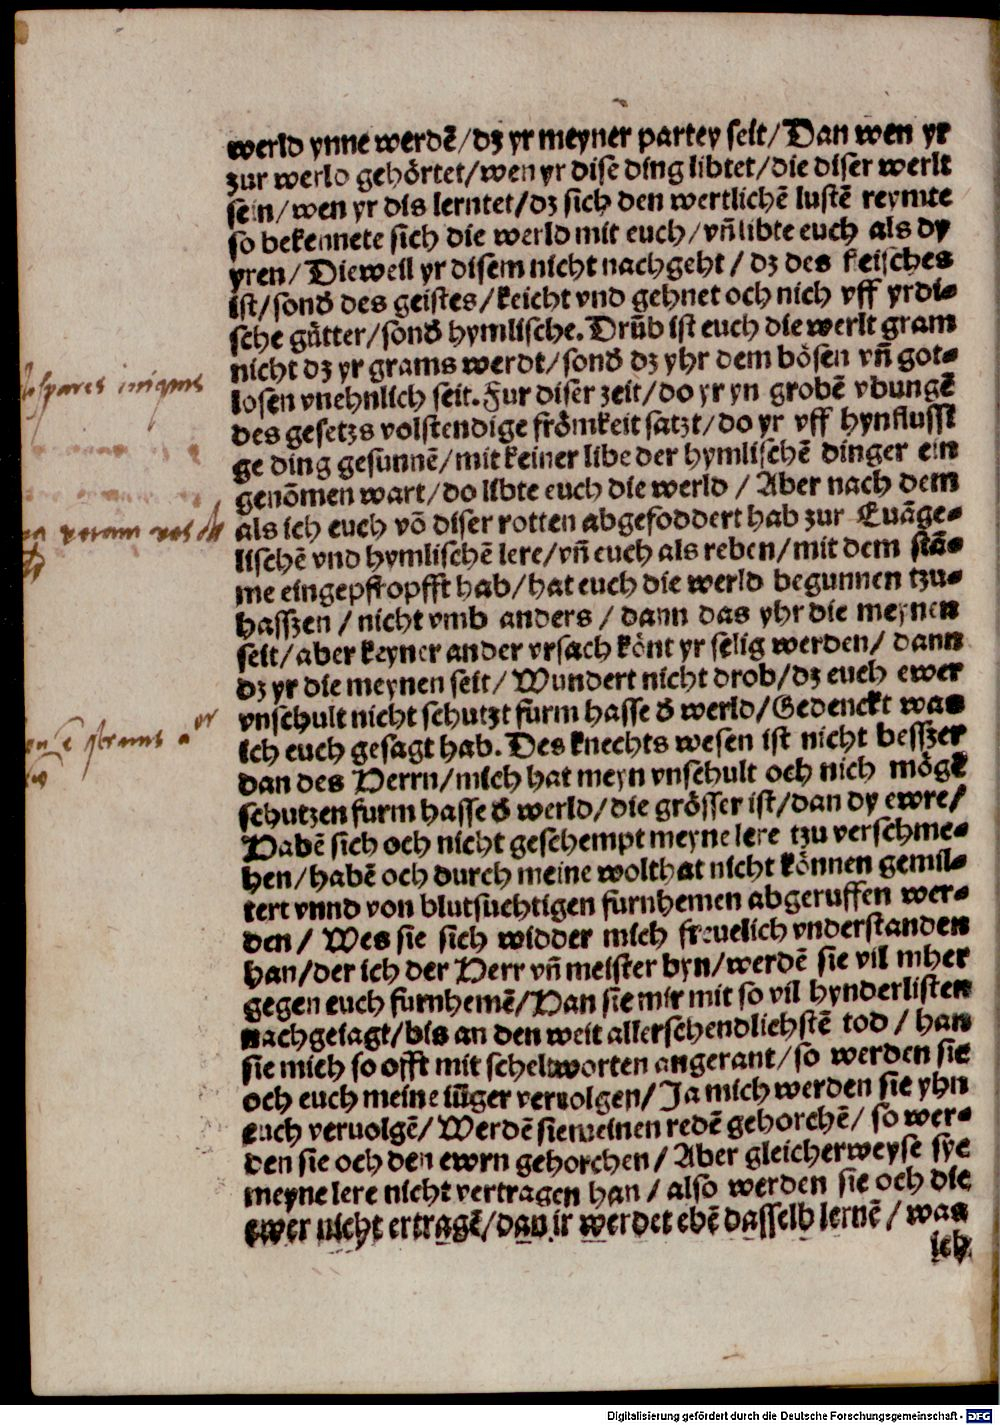 werld ynne werdē/dz yr meyner partey seit/Dan wen yr
zur werld gehörtet/wen yr dise ding libtet/die diser werlt
sein/wen yr dis lerntet/dz sich den wertlichē lustē reymte
so bekennete sich die werld mit euch/vn̄ libte euch als dy
yren/Dieweil yr disem nicht nachgeht/dz des fleisches
ist/sond̄ des geistes/keicht vnd gehnet och nich vff yrdi-
sche gütter/sond̄ hymlische. Drūb ist euch die werlt gram
nicht dz yr grams werdt/sond̄ dz yhr dem bösen vn̄ got-
losen vnehnlich seit. Fur diser zeit/do yr yn grobē vbungē
des gesetzs volstendige frömkeit satzt/do yr vff hynflussi
ge ding gesunnē/mit keiner libe der hymlischē dinger ein
genōmen wart/do libte euch die werld/Aber nach dem
als ich euch vō diser rotten abgefoddert hab zur Euāge-
lischē vnd hymlischē lere/vn̄ euch als reben/mit dem stā-
me eingepfropfft hab/hat euch die werld begunnen tzu-
hasszen/nicht vmb anders/dann das yhr die meynen
seit/aber keyner ander vrsach könt yr selig werden/dann
dz yr die meynen seit/Wundert nicht drob/dz euch ewer
vnschult nicht schutzt furm hasse d̄ werld/Gedenckt was
ich euch gesagt hab. Des knechts wesen ist nicht besszer
dan des Herrn/mich hat meyn vnschult och nich mögē
schutzen furm hasse d̄ werld/die grösser ist/dan dy ewre/
Habē sich och nicht geschempt meyne lere tzu verschme-
hen/habē och durch meine wolthat nicht können gemil-
tert vnnd von blutsuchtigen furnhemen abgeruffen wer-
den/Wes sie sich widder mich freuelich vnderstanden
han/der ich der Herr vn̄ meister byn/werdē sie vil mher
gegen euch furnhemē/Han sie mir mit so vil hynderlisten
nachgeiagt/bis an den weit allerschendlichstē tod/han
sie mich so offt mit scheltworten angerant/so werden sie
och euch meine iūger veruolgen/Ja mich werden sie yhn
euch veruolgē/Werdē sie meinen redē gehorchē/so wer-
den sie och den ewrn gehorchen/Aber gleicherweyse sye
meyne lere nicht vertragen han/also werden sie och die
ewer nicht ertragē/dan ir werdet ebē dasselb lernē/was
ich
dispares iniquus
Digitalisierung gefördert durch die Deutsche Forschungsgemeinschaft - DFG